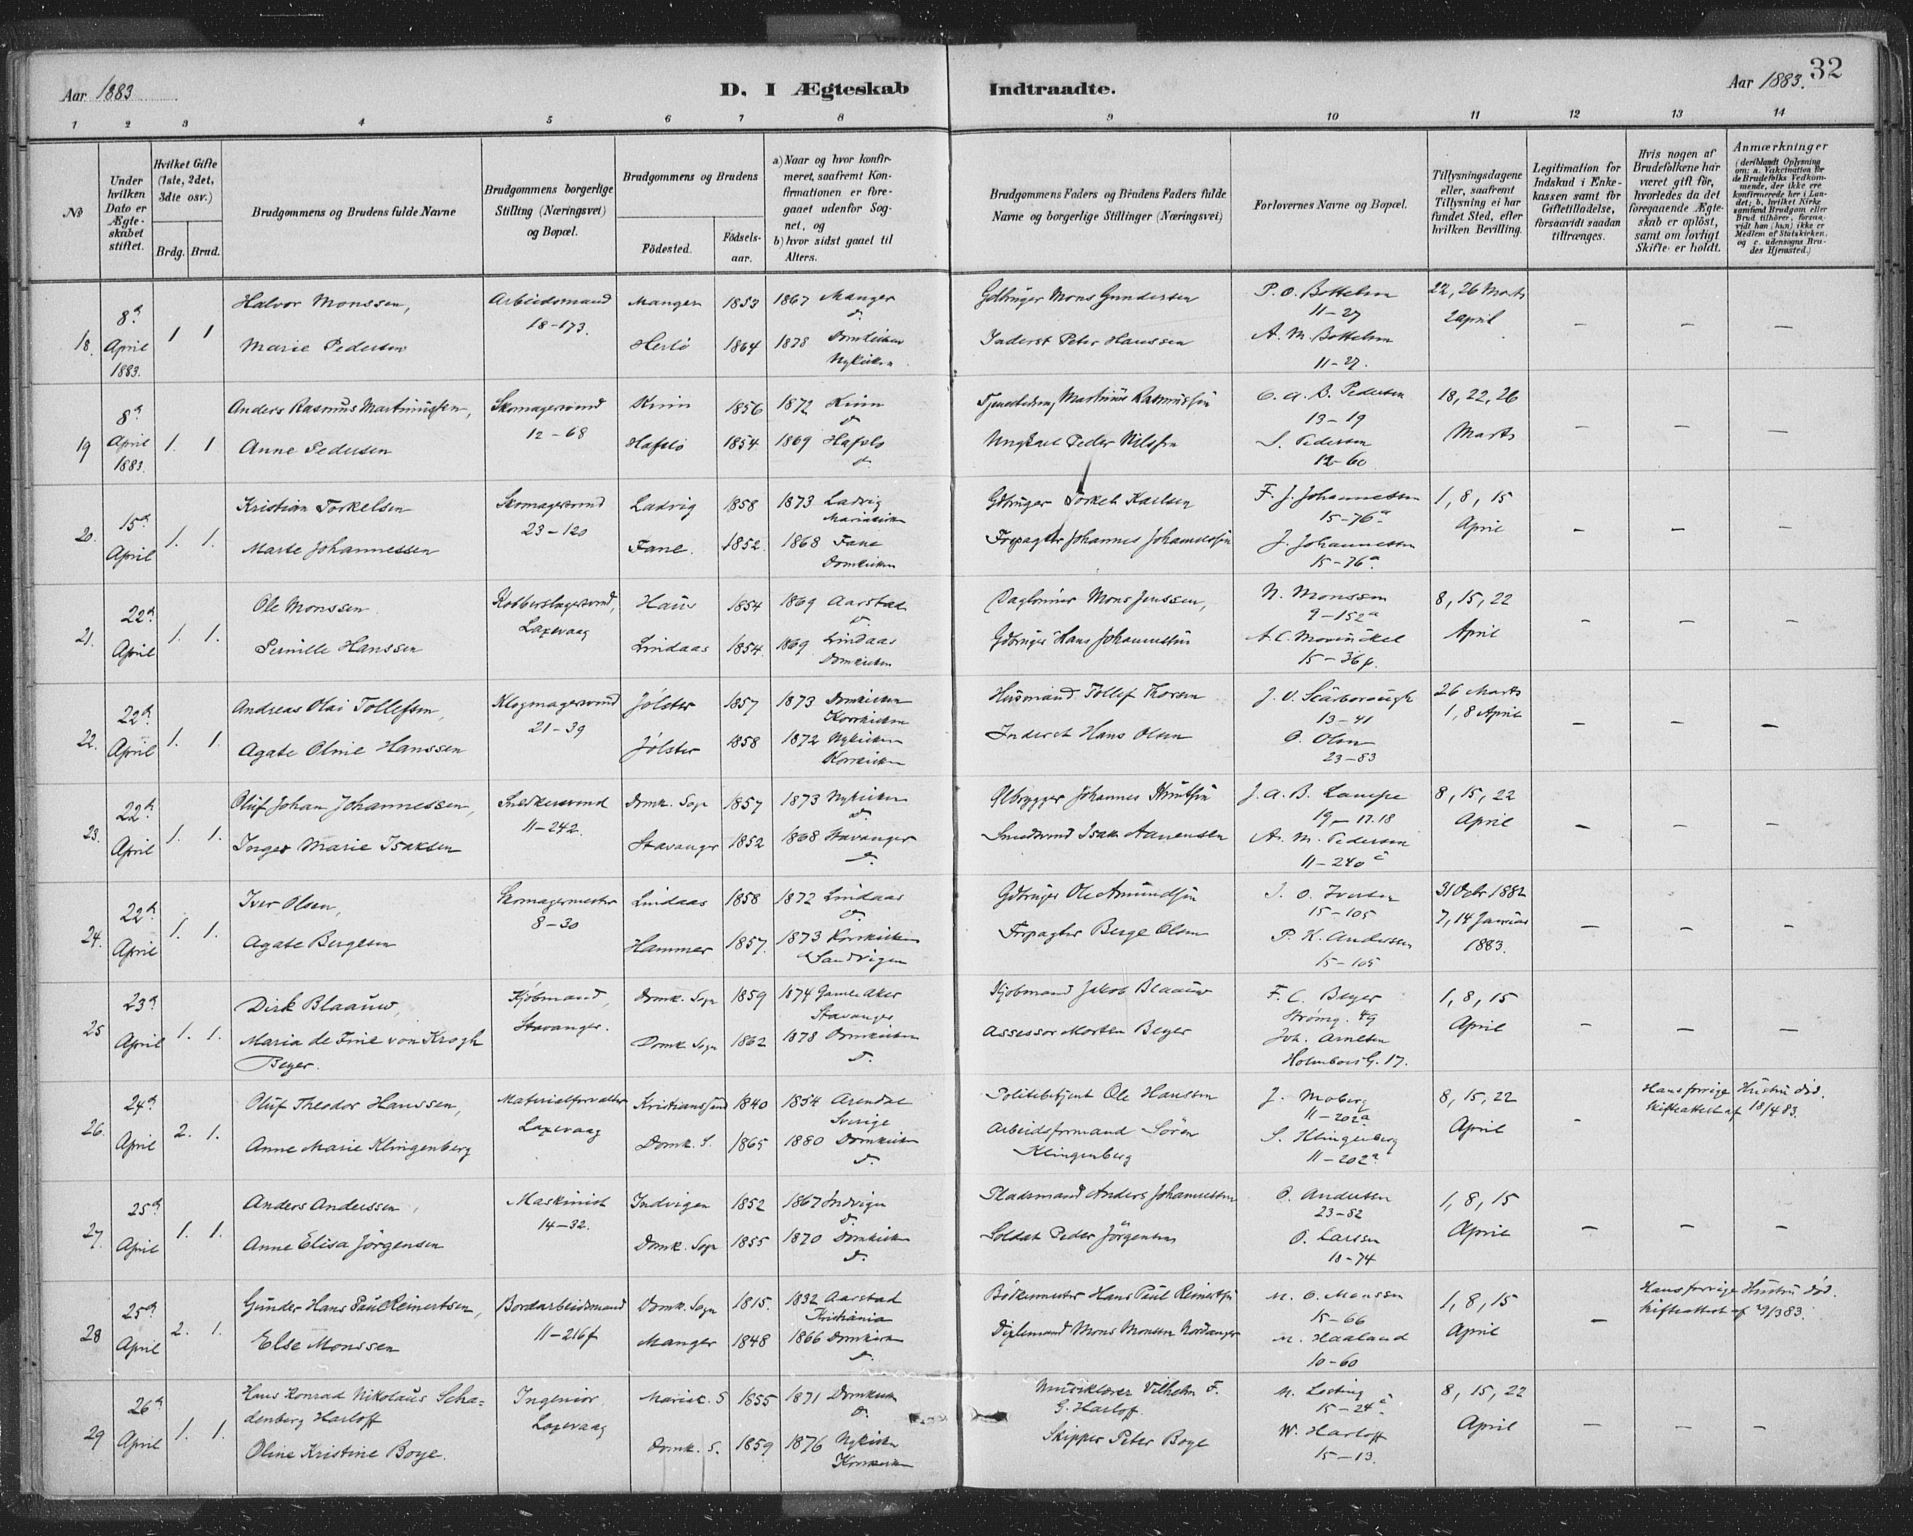 32
Aar 1883
D. I Ægteskab
Indtraadte.
Aar 1883.
1 2 3 4 5 6 7 8 9 10 11 12 13 14
No
Under hvilken Dato er Ægteskabet stiftet.
Hvilket Gifte (1ste, 2det, 3dte osv.)
Brdg. Brud.
Brudgommens og Brudens fulde Navne
Brudgommens borgerlige Stilling (Næringsvei) og Bopæl.
Brudgommens og Brudens
Födested.
Födsels-aar.
a) Naar og hvor konfirmeret, saafremt Konfirmationen er foregaaet udenfor Sognet, og
b) hvor sidst gaaet til Alters.
Brudgommens Faders og Brudens Faders fulde Navne og borgerlige Stillinger (Næringsvei)
Forlovernes Navne og Bopæl.
Tillysningsdagene eller, saafremt Tillysning ei har fundet Sted, efter hvilken Bevilling.
Legitimation for Indskud i Enkekassen samt for Giftetilladelse, forsaavidt saadan tiltrænges.
Hvis nogen af Brudefolkene har været gift för, hvorledes da det foregaaende Ægteskab er oplöst, samt om lovligt Skifte er holdt.
Anmærkninger
(deriblandt Oplysning om: a. Vaccination for de Brudefolks Vedkommende, der ikke ere konfirmerede her i Landet; b. hvilket Kirkesamfund Brudgom eller Brud tilhörer, forsaavidt han (hun) ikke er Medlem af Statskirken, og c. udensogns Brudes Hjemsted.)
18. 8de April 1883. 1 1
Halvor Monssen, Arbeidsmand Manger 1853 1867 Manger
18-173. d.
Marie Pedersen Herlö 1864 1878 Domkirken
Nykirken
Gdbruger Mons Gundersen P. O. Bottelsen 22, 26 Marts
11-27 2 April
Inderst Peter Hanssen A. M. Bottelsen
11-27.
19 8de April 1883. 1. 1
Anders Rasmus Martinussen, Skomagersvend Kinn 1856 1872 Kinn
12-68 d.
Anne Pedersen Hafslo 1854. 1869 Hafslo
d.
Martinus Rasmussen C. A. B. Pedersen 18, 22, 26
13-19 Marts
Ungkarl Peder Nilssen S. Pedersen
12-60
20. 15de April 1. 1.
Kristian Torkelsen Skomagersvend Ladvig 1858 1873 Ladvig
23-120 Mariakirken
Marte Johannessen Fane. 1852. 1868 Fane
Domkirken
Gdbruger Torkel Karlsen F. J. Johannessen 1, 8, 15
15-76a April
Forpagter Johannes Johannessen J. Johannessen
15-76a.
21. 22de April 1. 1.
Ole Monssen Kobberslagersvend, Haus 1854 1869 Aarstad
Laxevaag d.
Pernille Hanssen Lindaas 1854. 1869 Lindaas
Domkirken
Daglönner Mons Jenssen, N. Monssen 8, 15, 22
9-152a April
Gdbruger Hans Johannessen A. C. Mowinckel
15-36f.
22. 22de April 1. 1.
Andreas Olai Tollefsen, Klogmagersvend Jølster 1857 1873 Domkirken
21-39 Korskirken
Agate Oline Hanssen Jølster 1858 1872 Nykirken
Korskirken
Husmand Tollef Thorsen J. V. Scarborough 26 Marts
13-41 1, 8 April
Inderst Hans Olsen O. Olsen
23-83
23. 22de April 1. 1.
Oluf Johan Johannessen, Snedkersvend Domk. Sogn 1857 1873 Nykirken
11-242. d.
Inger Marie Isaksen Stavanger 1852 1868 Stavanger
d.
Ølbrygger Johannes Knutsen J. A. B. Lampe 8, 15, 22
19-17.18 April
Smedsvend Isak Aanensen A. M. Pedersen
11-240c
24. 22de April 1. 1.
Iver Olsen, Skomagermester Lindaas 1858 1872 Lindaas
8-30 d.
Agate Bergesen Hammer 1857. 1873 Korskirken
Sandvigen
Gdbruger Ole Amundsen J. O. Iversen 31 Octr 1882
15-105 7, 14 Januar
Forpagter Berge Olsen P. K. Andersen 1883.
15-105
25 23de April 1. 1.
Dirk Blaauw, Kjöbmand, Domk. Sogn 1859 1874 Gamle Aker
Stavanger. Stavanger
Maria de Fine von Krogh Beyer. Domk. Sogn 1862 1878 Domkirken
d.
Kjöbmand Jakob Blaauw F. C. Beyer 1, 8, 15
Strømg. 49 April
Assessor Morten Beyer Joh. Arnesen
Holmboes G. 17.
26. 24de April 2. 1.
Oluf Theodor Hanssen, Materialforvalter Kristianssund 1840 1854 Arendal
Laxevaag Sverige
Anne Marie Klingenberg Domk. S. 1865 1880 Domkirken
d.
Politibetjent Ole Hanssen J. Moberg 8, 15, 22
11-202a April
Arbeidsformand Sören Klingenberg S. Klingenberg
11-202a
Hans forrige Hustru död.
Skifteattest af 18/4 83.
27. 25de April 1. 1.
Anders Anderssen, Maskinist Indvigen 1852 1867 Indvigen
14-32. d.
Anne Elisa Jørgensen Domk. Sogn 1855 1870 Domkirken
d.
Pladsmand Anders Johannessen O. Andersen 1, 8, 15
23-82 April
Soldat Peder Jörgensen O. Larssen
18-74
28 25de April 2. 1.
Gunder Hans Paul Reinertsen, Bordarbeidsmand Domk. Sogn 1815. 1832 Aarstad
11-216f Kristiania
Else Monssen Manger 1848 1866 Domkirken
d.
Bökermester Hans Paul Reinertsen M. O. Monssen 1, 8, 15
15-66 April
Mons Monsen Nordanger M. Haaland
10-60
Hans forrige Hustru död.
Skifteattest af 9/3 83.
29 26de April 1. 1.
Hans Konrad Nikolaus Schadenberg Harloff Ingeniör Mariek. S 1855 1871 Domkirken
Laxevaag d.
Oline Kristine Boye. Domk. S. 1859 1876 Nykirken
Korskirken
Musiklærer Vilhelm F. G. Harloff M. Lesting 8, 15, 22
15-24c April
Skipper Peter Boye W. Harloff
15-13.